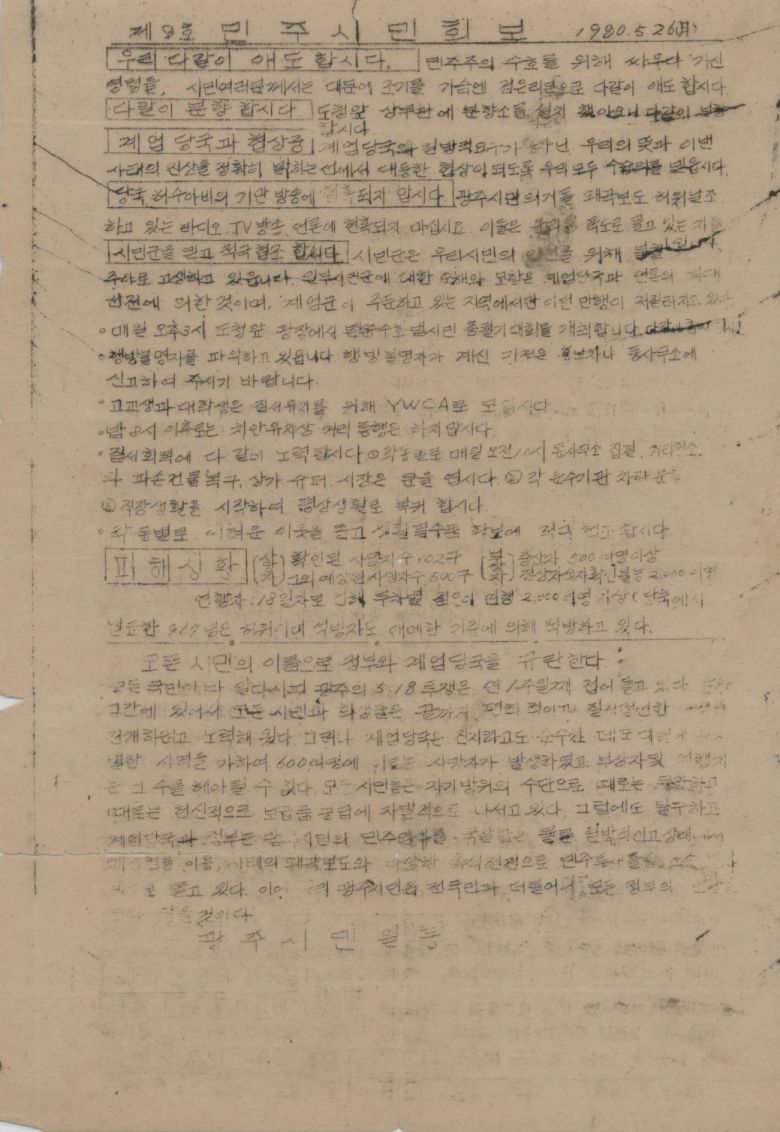 제9호 민주시민회보 1980.5.26(月)
우리 다같이 애도 합시다. 민주주의 수호를 위해 싸우다 가신
영령들, 시민여러분께서는 대문에 조기를 가슴엔 검은리본으로 다같이 애도 합시다
다같이 분향 합시다 도청앞 상무관에 분향소를 설치 했아오니 다같이 분향
합시다
계엄 당국과 협상중 계엄당국의 일방적요구가 아닌 우리의 뜻과 이번
사태의 진상을 정확히 밝히는 선에서 대등한 협상이 되도록 우리모두 수습위를 믿읍시다.
당국 허수아비의 기만 방송에 현혹되지 맙시다 광주시민 의거를 왜곡보도 허위날조
하고 있는 라디오, TV 방송 언론에 현혹되지 마십시요. 이들은 우리를 폭도로 몰고 있는 자들
시민군을 믿고 적극협조 합시다. 시민군은 우리시민의 안전을 위해 불철
주야로 고생하고 있읍니다. 일부시민군에 대한 오해와 모함은 계엄당국과 언론의 허위
선전에 의한 것이며, 계엄군이 주둔하고 있는 지역에서만 이런 만행이 저질러지고 있다
◦매일 오후3시 도청앞 광장에서 민주수호 범시민 총궐기대회를 개최합니다.
◦행방불명자를 파악하고 있읍니다 행방불명자가 계신 가정은 홍보차나 동사무소에
신고하여 주시기 바랍니다.
◦고교생과 대학생은 질서유지를 위해 YWCA로 모입시다.
◦밤 8시 이후로는 치안유지상 거리 통행은 하지맙시다.
◦질서회복에 다 같이 노력합시다 ① 각동별로 매일 오전10시 동사무소 집결, 거리청소,
파손건물복구, 상가 슈퍼, 시장은 문을 엽시다. ② 각 운수기관 차량
③ 직장생활을 시작하여 평상생활로 복귀 합시다.
◦각 동별로 어려운 이웃을 돕고 생활필수품 확보에 적극 협조 합시다
피해상황 (사자) 확인된 사망자수 102구 (부자) 중상자 500여명이상
그외예상된사망자수 500구 경상자숫자확인불능 2,000여명
연행자: 18일자로 무차별 젊은이 연행 2,000여명 이상 (당국에서
발표한 927명은 허위이며 석방자도 애매한 기준에 의해 석방하고 있다.
모든 시민의 이름으로 정부와 계엄당국을 규탄한다.
모든 국민이 다 알다시피 광주의 5.18 투쟁은 연 1주일째 접어 들고 있다
그간에 있어서 모든 시민과 학생들은 끝까지 평화적이고 질서정연한
전개하려고 노력해 왔다 그러나 계엄당국은 진지하고도 순수한 데모 대열에
별한 사격을 가하여 600여명에 이르는 사망자가 발생하였고 부상자및 연행자
는 그 수를 헤아릴 수 없다. 모든 시민들은 자기방위의 수단으로 때로는 투쟁하고
때로는 헌신적으로 보급품 공급에 자발적으로 나서고 있다. 그럼에도 불구하고
계엄당국과 정부는 시민의 민주의거를 일방적이고
이용, 사태의 왜곡보도와 선전으로
몰고 있다. 광주시민은 전국민과 더불어서 모든 정부의
것이다.
광주시민 일동